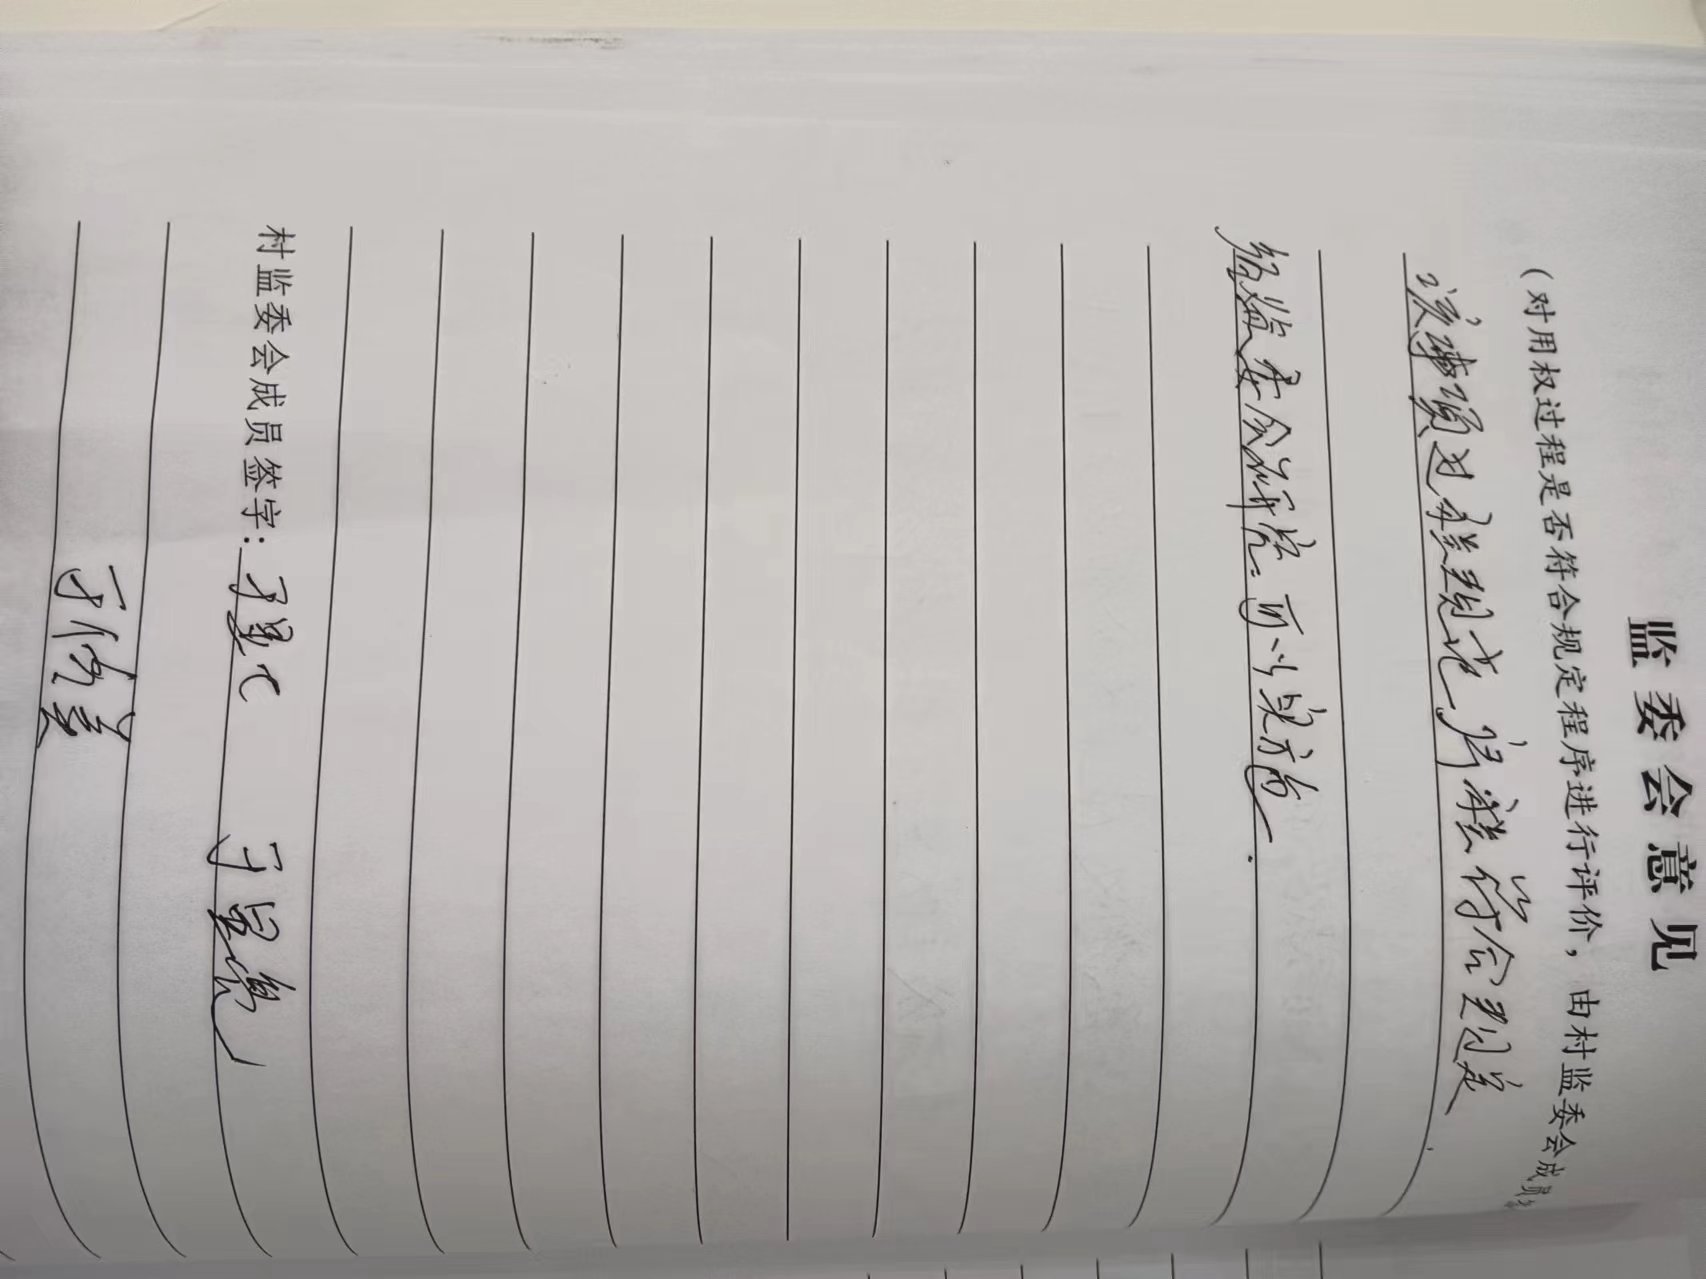 监委会意见
(对用权过程是否符合规定程序进行评价，由村监委会成员
该事项过程规范，序程符合规定.
经监委会研究：可以实施.
村监委会成员签字：于
于
于